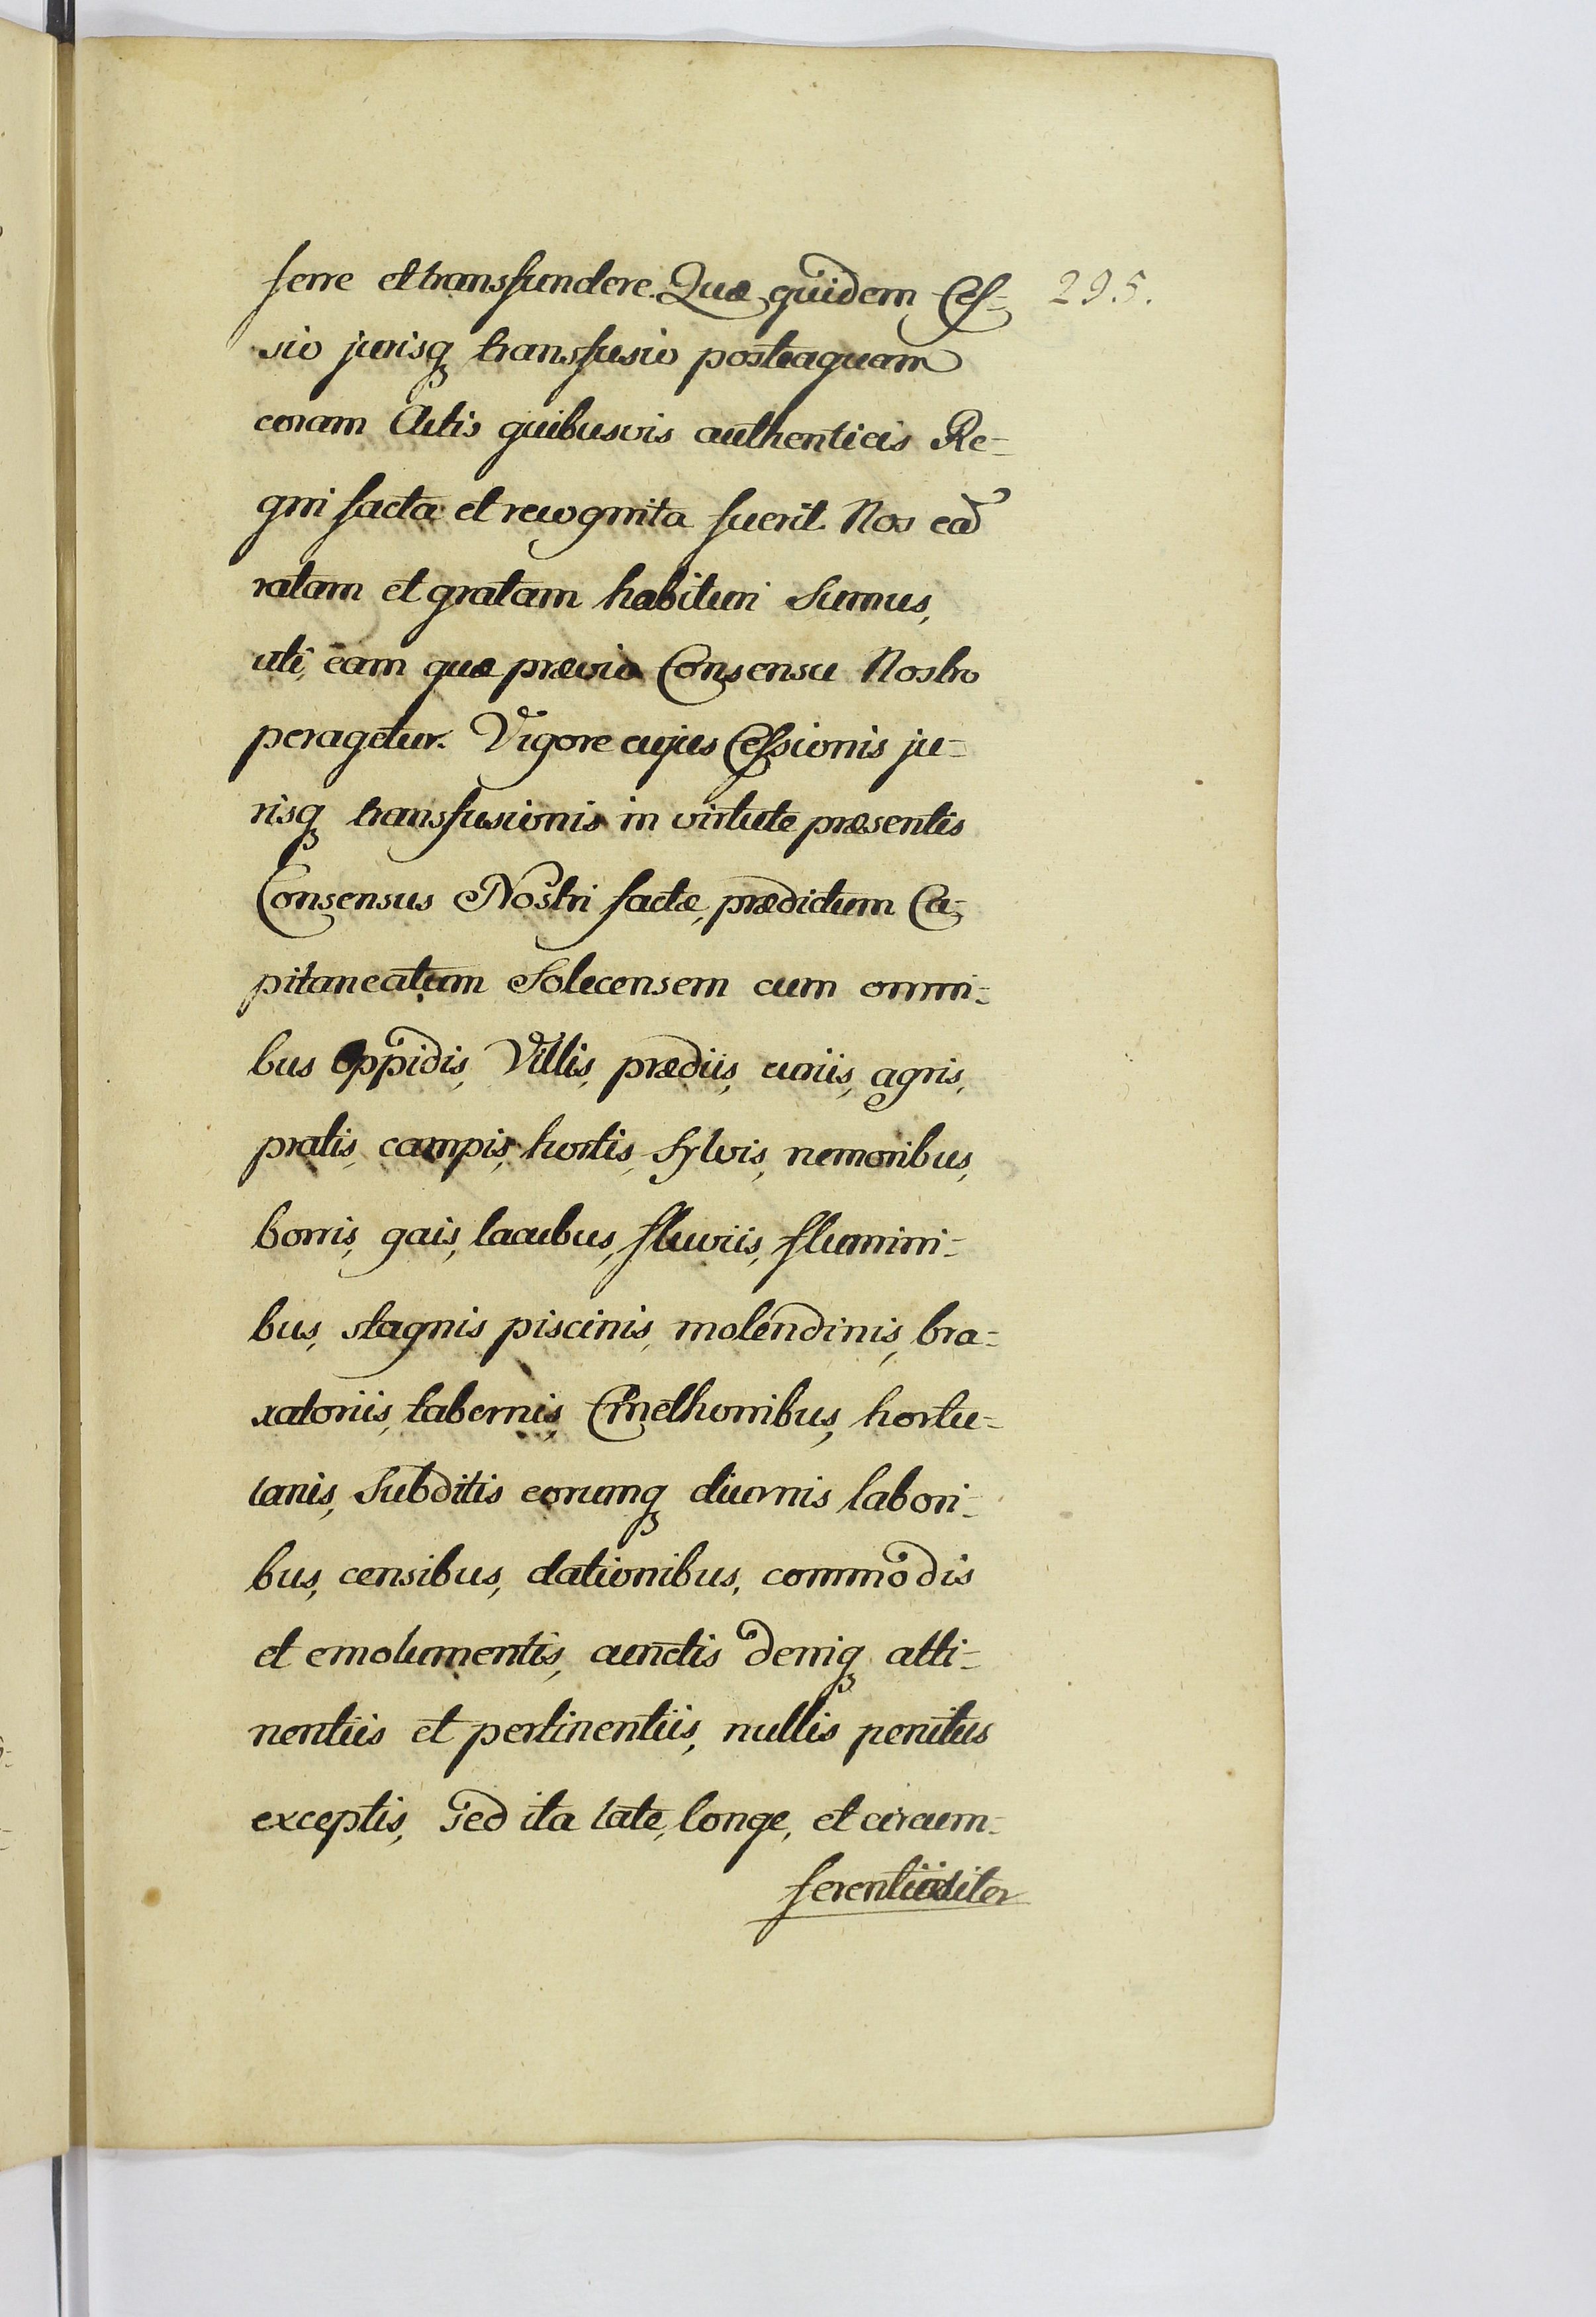 ferre et transfundere. Quæ quidem Ces- 295.
sio jurisq transfusio posteaquam
coram Actis quibusvis authenticis Re-
gni facta et recognita fuerit Nos eā
ratam et gratam habituri sumus,
uti eam quæ prævio Consensu Nostro
peragetur. Vigore cujus Cessionis ju-
risq transfusionis in virtute præsentis
Consensus Nostri factæ, prædictum Ca-
pitaneatum Solecensem cum omni-
bus Oppidis, Villis, prædiis, curiis, agris,
pratis, campis, hortis, sylvis, nemoribus,
borris, gais, lacubus, fluviis, flumini-
bus, stagnis piscinis, molendinis, bra-
xatoriis, tabernis, Cmethonibus, hortu-
lanis, subditis eorumq diurnis labori-
bus, censibus, dationibus, commodis
et emolumentis, cunctis deniq atti-
nentiis et pertinentiis, nullis penitus
exceptis, sed ita late, longe, et circum-